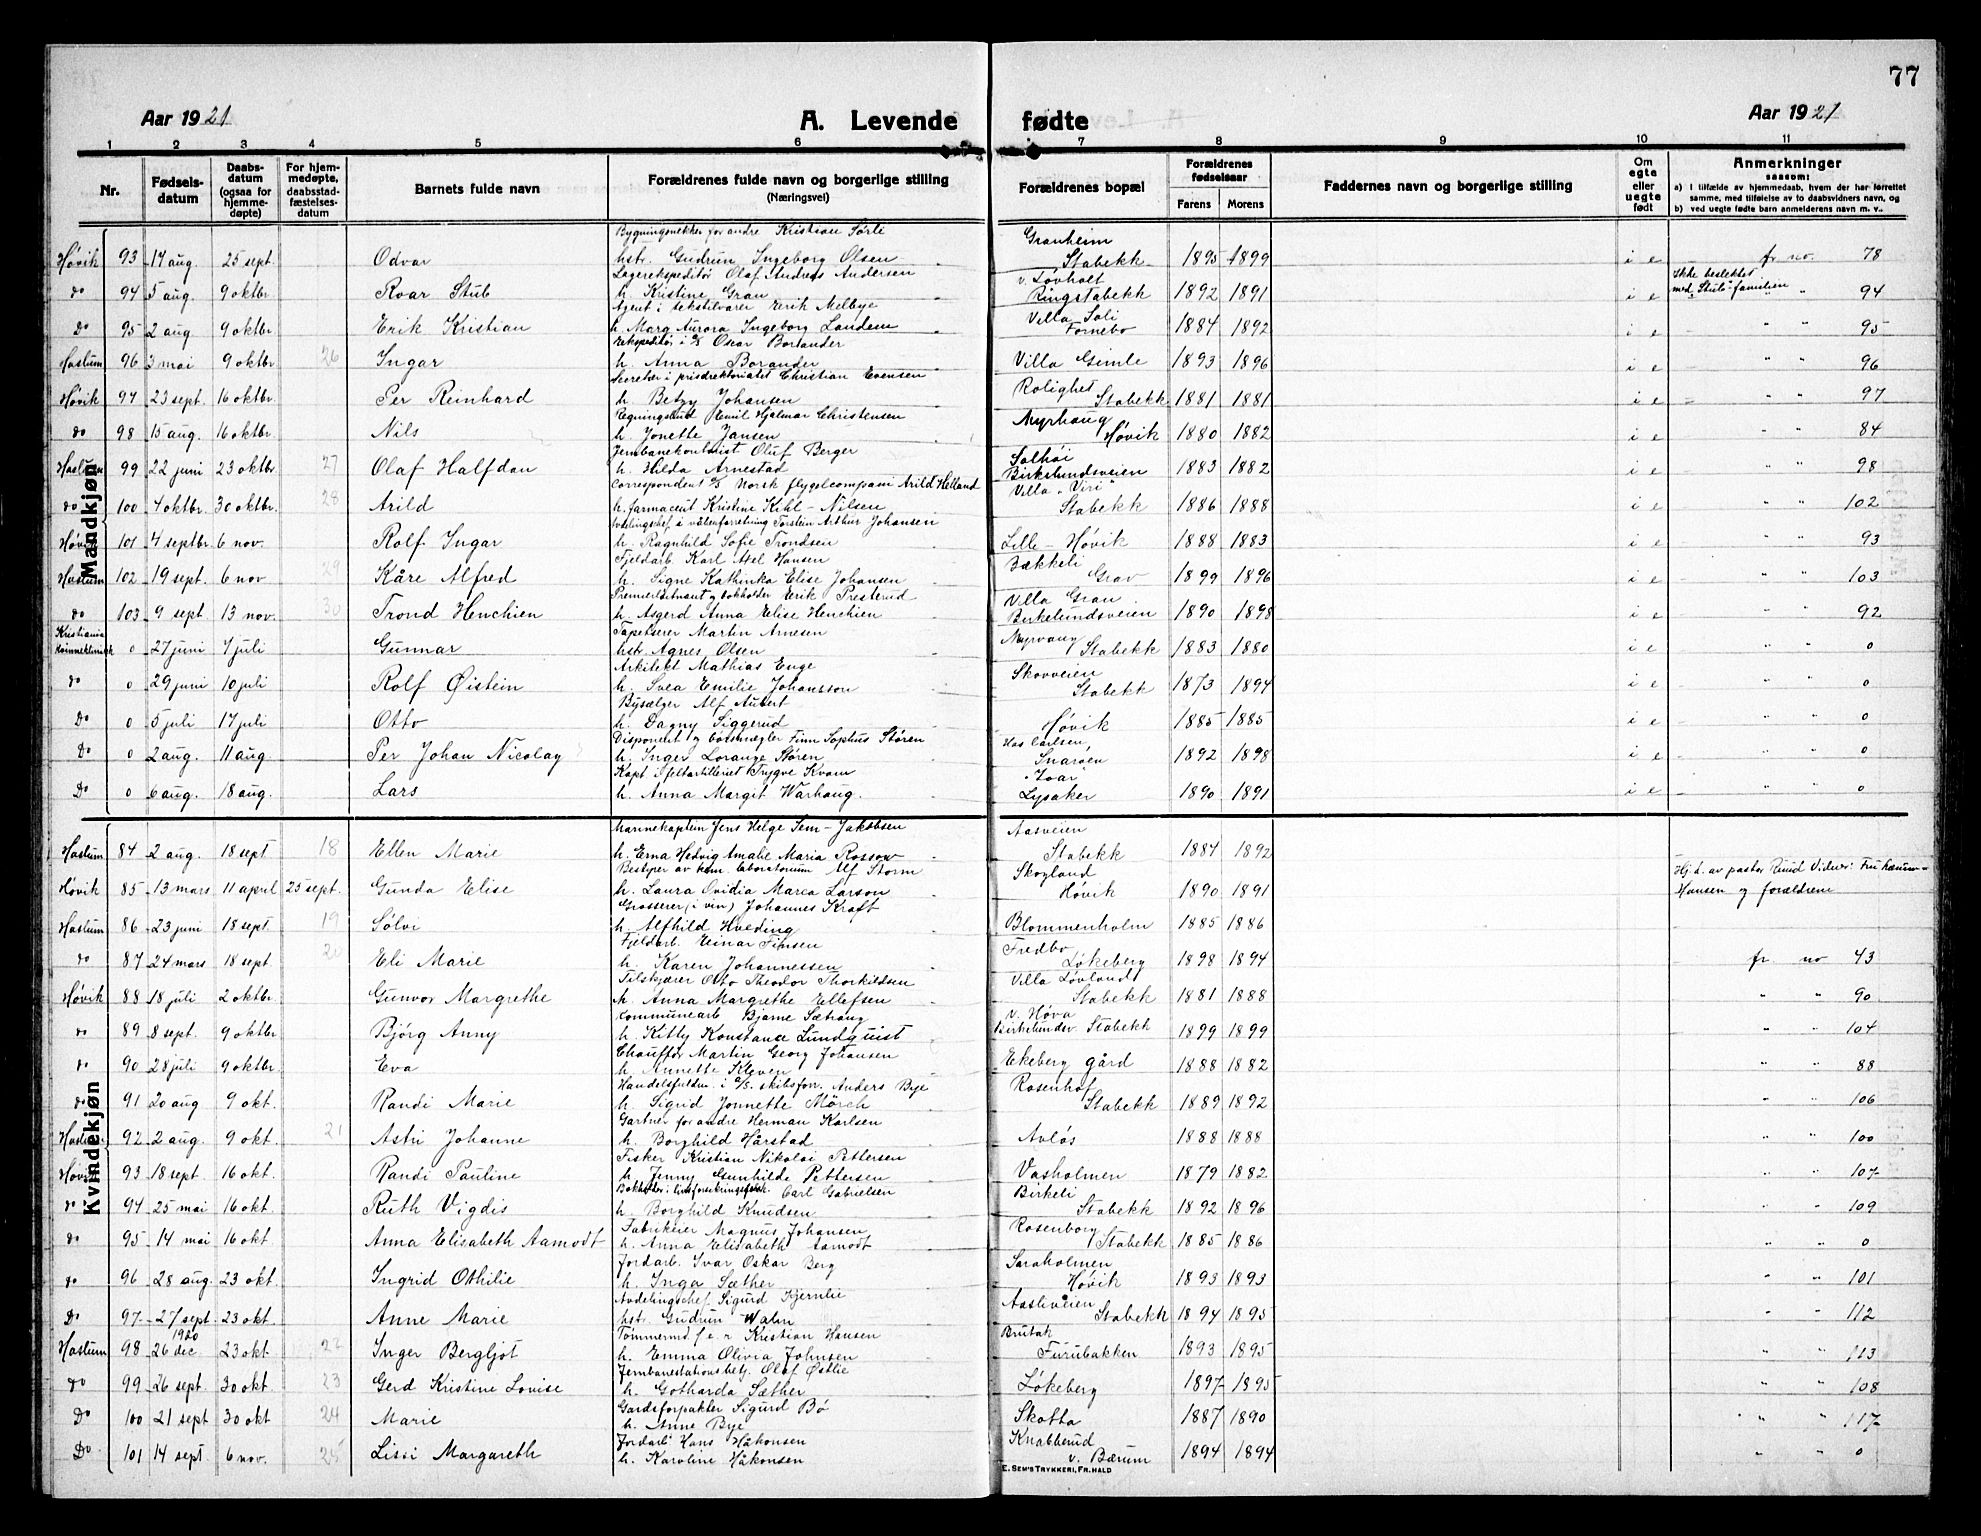 77
Aar 1921 A. Levende fødte Aar 1921
1 2 3 4 5 6 7 8 9 10 11
Nr. Fødsels-datum Daabs-datum (ogsaa for hjemme-døpte) For hjem-medøpte, daabsstad-fæstelses-datum Barnets fulde navn Forældrenes fulde navn og borgerlige stilling (Næringsvei) Forældrenes bopæl Forældrenes fødselsaar Farens Morens Faddernes navn og borgerlige stilling Om egte eller uegte født Anmerkninger saasom:
a) I tilfælde av hjemmedaab, hvem der har forrettet samme, med tilføielse av to daabsvidners navn, og
b) ved uegte fødte barn anmelderens navn m. v.
Mandkjøn
Bygningsnekker for andre Kristian Sørli Granheim
Høvik 93 17 aug. 25 sept. Odvar hstr. Gudrun Ingeborg Olsen Stabekk 1895 1899 i e fr no. 78
Lagerekspeditør Olaf Andreas Andersen v. Løvholt Ikke beslektet
do 94 5 aug. 9 oktbr Roar Stub h. Kristine Grau Ringstabekk 1892 1891 i e med "Stub" familien " 94
Agent i tekstilvarer Erik Melbye Villa Soli
Do 95 2 aug 9 oktbr Erik Kristian h. Marg Aurora Ingeborg Landem Fornebo 1884 1892 i e " " 95
Ekspeditør i Oscar Borlander
Haslum 96 3 mai 9 oktbr 26 Ingar h. Anna Borander Villa Gimle 1893 1896 i e " " 96
Secretær i prisdirektoriatet Christian Evensen Rolighet
Høvik 97 23 sept. 16 oktbr. Per Reinhard h. Betzy Johansen Stabekk 1881 1881 i e " " 97
Regningsbud Emil Hjalmar Christensen Myrhaug
do 98 15 aug. 16 oktbr. Nils h. Jonette Jansen Høvik 1880 1882 i e " " 84
Jernbanekontorist Oluf Berger Solhøi
Haslum 99 22 juni 23 oktbr 27 Olaf Halfdan h. Hilda Arnestad Birkelundsveien 1883 1882 i e " " 98
Correspondent Norsk flygelcompani Arild Helland Villa "Viri"
do 100 4 oktbr. 30 oktbr. 28 Arild h. farmaceut Kristine Kihl-Nilsen Stabekk 1886 1888 i e " " 102
Avdelingschef i våbenforretning Torstein Arthur Johansen
Høvik 101 4 septbr. 6 nov. Rolf Ingar h. Ragnhild Sofie Trondsen Lille-Høvik 1888 1883 i e " " 93
Fjeldarb. Karl Axel Hansen Bækkeli
Haslum 102 19 sept. 6 nov 29 Kåre Alfred h. Signe Kathinka Elise Johansen Grav 1899 1896 i e " " 103
Premierløitnant og bokholder Erik Presterud Villa Gran
do 103 9 sept 13 nov. 30 Trond Henchien h. Asgerd Anna Elise Henchien Birkelundsveien 1890 1898 i e " " 92
Kristiania Tapetserer Martin Arnesen Myrvang
Kvinneklinikk 0 27 juni 7 juli Gunnar hstr. Agnes Olsen Stabekk 1883 1880 i e " " 0
Arkitekt Mathias Enge Skovveien
do 0 29 juni 10 juli Rolf Øistein h. Svea Emilie Johansson Stabekk 1873 1894 i e " " 0
Bysælger Alf Aubert
Do 0 5 juli 17 juli Otto h. Dagny Siggerud Høvik 1885 1885 i e " " 0
Disponent og børsmægler Finn Sophus Støren Hos Carlsen,
Do 0 2 aug. 11 aug. Per Johan Nicolay h. Inger Lorange Støren Snarøen 1892 1898 i e " " 0
Kapt. i feltartilleriet Trygve Kvam "Ivar"
Do 0 6 aug. 18 aug. Lars h. Anna Margit Warhaug. Lysaker 1890 1891 i e " " 0
Kvindekjøn
Marinekaptein Jens Helge Sem-Jakobsen Aasveien
Haslum 84 2 aug. 18 sept 18 Ellen Marie h. Erna Hedvig Amalie Maria Rossow Stabekk 1884 1892
Bestyrer av kem. laboratorium Alf Storm Skogland Hj.d. av pastor Ruud Vidner: Fru
Høvik 85 13 mars 11 april 25 sept. Gunda Elise h. Laura Ovidia Marea Larson Høvik 1890 1891 Hansen og forældrene
Grosserer (i vin) Johannes Kraft
Haslum 86 23 juni 18 sept 19 Sølvi h. Alfhild Hveding Blommenholm 1885 1886
Fjeldarb. Einar Finsen Fredbo
do 87 24 mars 18 sept 20 Eli Marie h. Karen Johannessen Løkeberg 1898 1894 fr no 43
Tilskjærer Otto Theodor Thorkildsen Villa Løvlund
Høvik 88 18 juli 2 oktbr. Gunvor Margrethe h. Anna Margrethe Ellefsen Stabekk 1881 1888 " " 90
Kommunearb Bjarne Sæthang v. Høva
do 89 8 sept. 9 oktbr Bjørg Anny h. Kitty Konstance Lundquist Birkelundsv Stabekk 1899 1899 " " 104
Chauffør Martin Georg Johansen
do 90 28 juli 9 oktbr Eva h. Annette Kleven Ekeberg gård 1888 1882 " " 88
Handelsfuldm. i a/s. skibsforr. Anders Bye Rosenhof
do 91 20 aug 9 okt. Randi Marie h. Sigrid Jonnette Mörch Stabekk 1889 1892 " " 106
Gartner for andre Herman Karlsen
Haslum 92 2 aug. 9 okt. 21 Astri Johanne h. Borghild Hårstad Avløs 1888 1888 " " 100
Fisker Kristian Nikolai Pettersen
Høvik 93 18 sept 16 okt. Randi Pauline h. Jenny Gunhilde Pettersen Vasholmen 1879 1882 " " 107
Bokholder i livsforsikringsselsk. Carl Gabrielsen Birkeli
do 94 25 mai 16 okt. Ruth Vigdis h. Borghild Knudsen Stabekk 1892 1896 " " 109
Fabrikeier Magnus Johansen Rosenborg
do 95 14 mai 16 okt Anna Elisabeth Aamodt h. Anna Elisabeth Aamodt Stabekk 1885 1886 " " 0
Jordarb. Ivar Oskar Berg Saraholmen
do 96 28 aug. 23 okt. Ingrid Othilie h. Inga Sæther Høvik 1893 1893 " " 101
Avdelingschef Sigurd Kjernlie Aasliveien
Do 97 27 sept 23 okt. Anne Marie hstr. Gudrun Walm Stabekk 1894 1895 " " 112
1920 Tømmermd f. e. r Kristian Hansen Brutak
Haslum 98 26 dec. 23 okt 22 Inger Bergljot h. Emma Olivia Johnsen Furubakken 1893 1895 " " 113
Jernbanestationsbetj. Olaf Østlie
do 99 26 sept. 30 okt. 23 Gerd Kristine Lovise h. Gotharda Sæther Løkeberg 1897 1895 " " 108
Gardsforpakter Sigurd Bø
Do 100 21 sept 30 okt 24 Marie h. Anne Bye Skotta 1887 1890 " " 117
Jordarb Hans Håkonsen Knabberud
Do 101 14 sept. 6 nov. 25 Lissi Margareth h. Karoline Håkonsen v. Bærum 1894 1894 " " 0
E. SEM'S TRYKKERI, FR. HALD